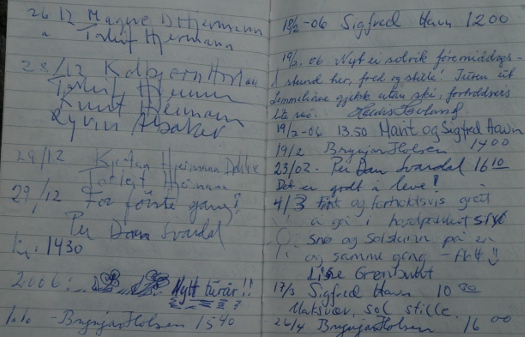 26/12 Magne D Hjermann
" Torleif Hjermann
28/12 Kolbjørn
Torleif Hjermann
Knut Hjermann
Eyvin
29/12
Torleif Hjermann
29/12 For første gang!
Per Dam Svardal
kl. 1430
2006: Nytt turår!!
- Brynjar Holsen 1540
18/2-06 Sigfred Havn 1200
19/2.06 Nyt ei solrik føremiddags-
stund her, fred og stille! Turen ut
gjekk utan ski, forholdsvis
lite snø.
19/2-06 13.50 Marit og Sigfred Havn
19/2 Brynjar Holsen 1400
23/02- Per Dam Svardal 1610
Det er godt å leve!
4/3 Fint og forholdsvis greit
å gå i hardpakket snø
Snø og solskinn på en
og samme gang - flott!!
Line
17/3 Sigfred Havn 10
Uaksvær, sol, stille.
26/4 Brynjar Holsen 16 00